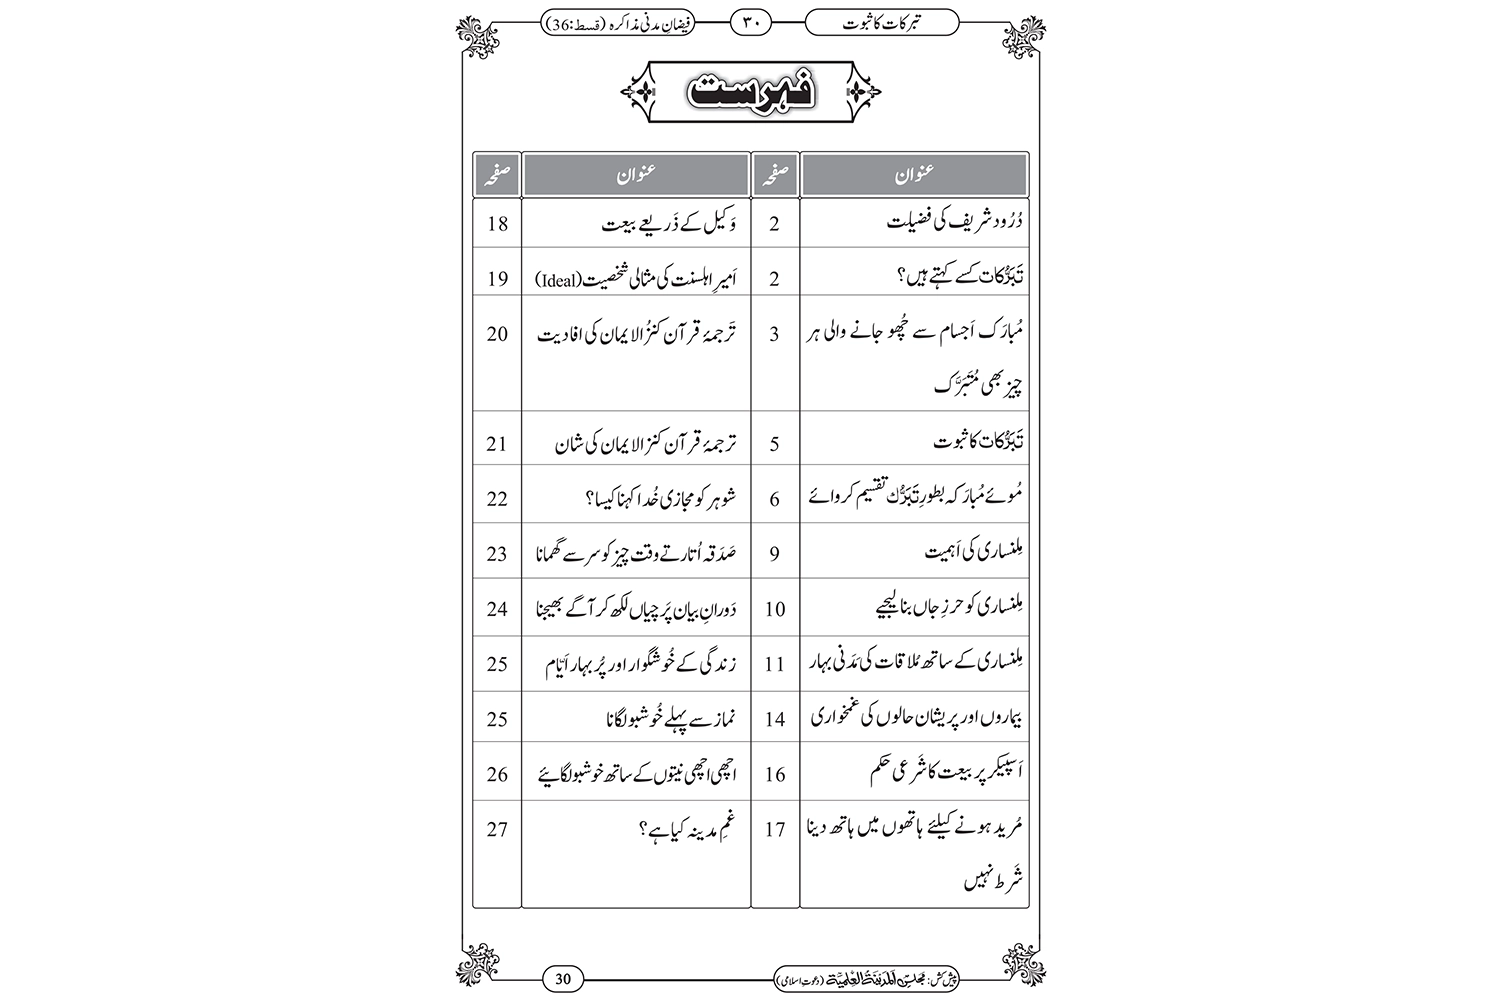 تبرکات کا ثبوت ۳۰ فیضانِ مدنی مذاکرہ (قسط:36)
فہرست
عنوان صفحہ عنوان صفحہ
دُرُود شریف کی فضیلت 2 وَکیل کے ذَریعے بیعت 18
تَبَرُّکات کسے کہتے ہیں؟ 2 اَمیرِ اہلسنت کی مثالی شخصیت (Ideal) 19
مُبارَک اَجسام سے چُھو جانے والی ہر 3 تَرجمۂ قرآن کنزُالایمان کی افادیت 20
چیز بھی مُتَبَرَّک
تَبَرُّکات کا ثبوت 5 ترجمۂ قرآن کنز الایمان کی شان 21
مُوئے مُبارَکہ بطورِ تَبَرُّک تقسیم کروائے 6 شوہر کو مجازی خُدا کہنا کیسا؟ 22
مِلنساری کی اَہمیت 9 صَدَقہ اُتارتے وقت چیز کو سر سے گھمانا 23
مِلنساری کو حرزِ جاں بنا لیجیے 10 دَورانِ بیان پَرچیاں لکھ کر آگے بھیجنا 24
مِلنساری کے ساتھ مُلاقات کی مَدَنی بہار 11 زندگی کے خُوشگوار اور پُر بہار اَیّام 25
بیماروں اور پریشان حالوں کی غمخواری 14 نماز سے پہلے خُوشبو لگانا 25
اَسپیکر پر بیعت کا شَرعی حکم 16 اچھی اچھی نیتوں کے ساتھ خوشبو لگائیے 26
مُرید ہونے کیلئے ہاتھوں میں ہاتھ دینا 17 غمِ مدینہ کیا ہے؟ 27
شَرط نہیں
پیش کش: مجلس المدینۃ العلمیۃ (دعوتِ اسلامی) 30